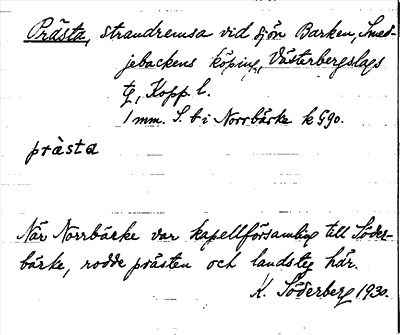 Prästa, strandremsa vid sjön Barken, Smed-
jebackens köping, Västerbergslags
tg, Kopp. l.
1 mm. S. t i Norrbärke k
prästa
När Norrbärke var kapellförsamling till Söder-
bärke, rodde prästen och landsteg här.
K. Söderberg 1930.